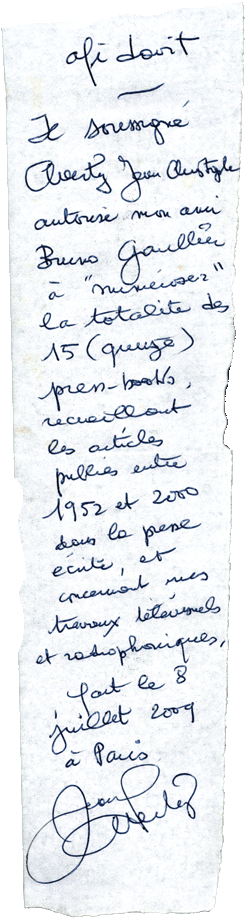 afidavit
Je soussigné
Averty Jean Christophe
autorise mon ami
Bruno Gaullier
à "numériser"
la totalité des
15 (quinze)
press-books,
recueillant
les articles
publiés entre
1952 et 2000
dans la presse
écrite, et
concernant mes
travaux télévisuels
et radiophoniques,
fait le 8
juillet 2009
à Paris
Jean
Averty